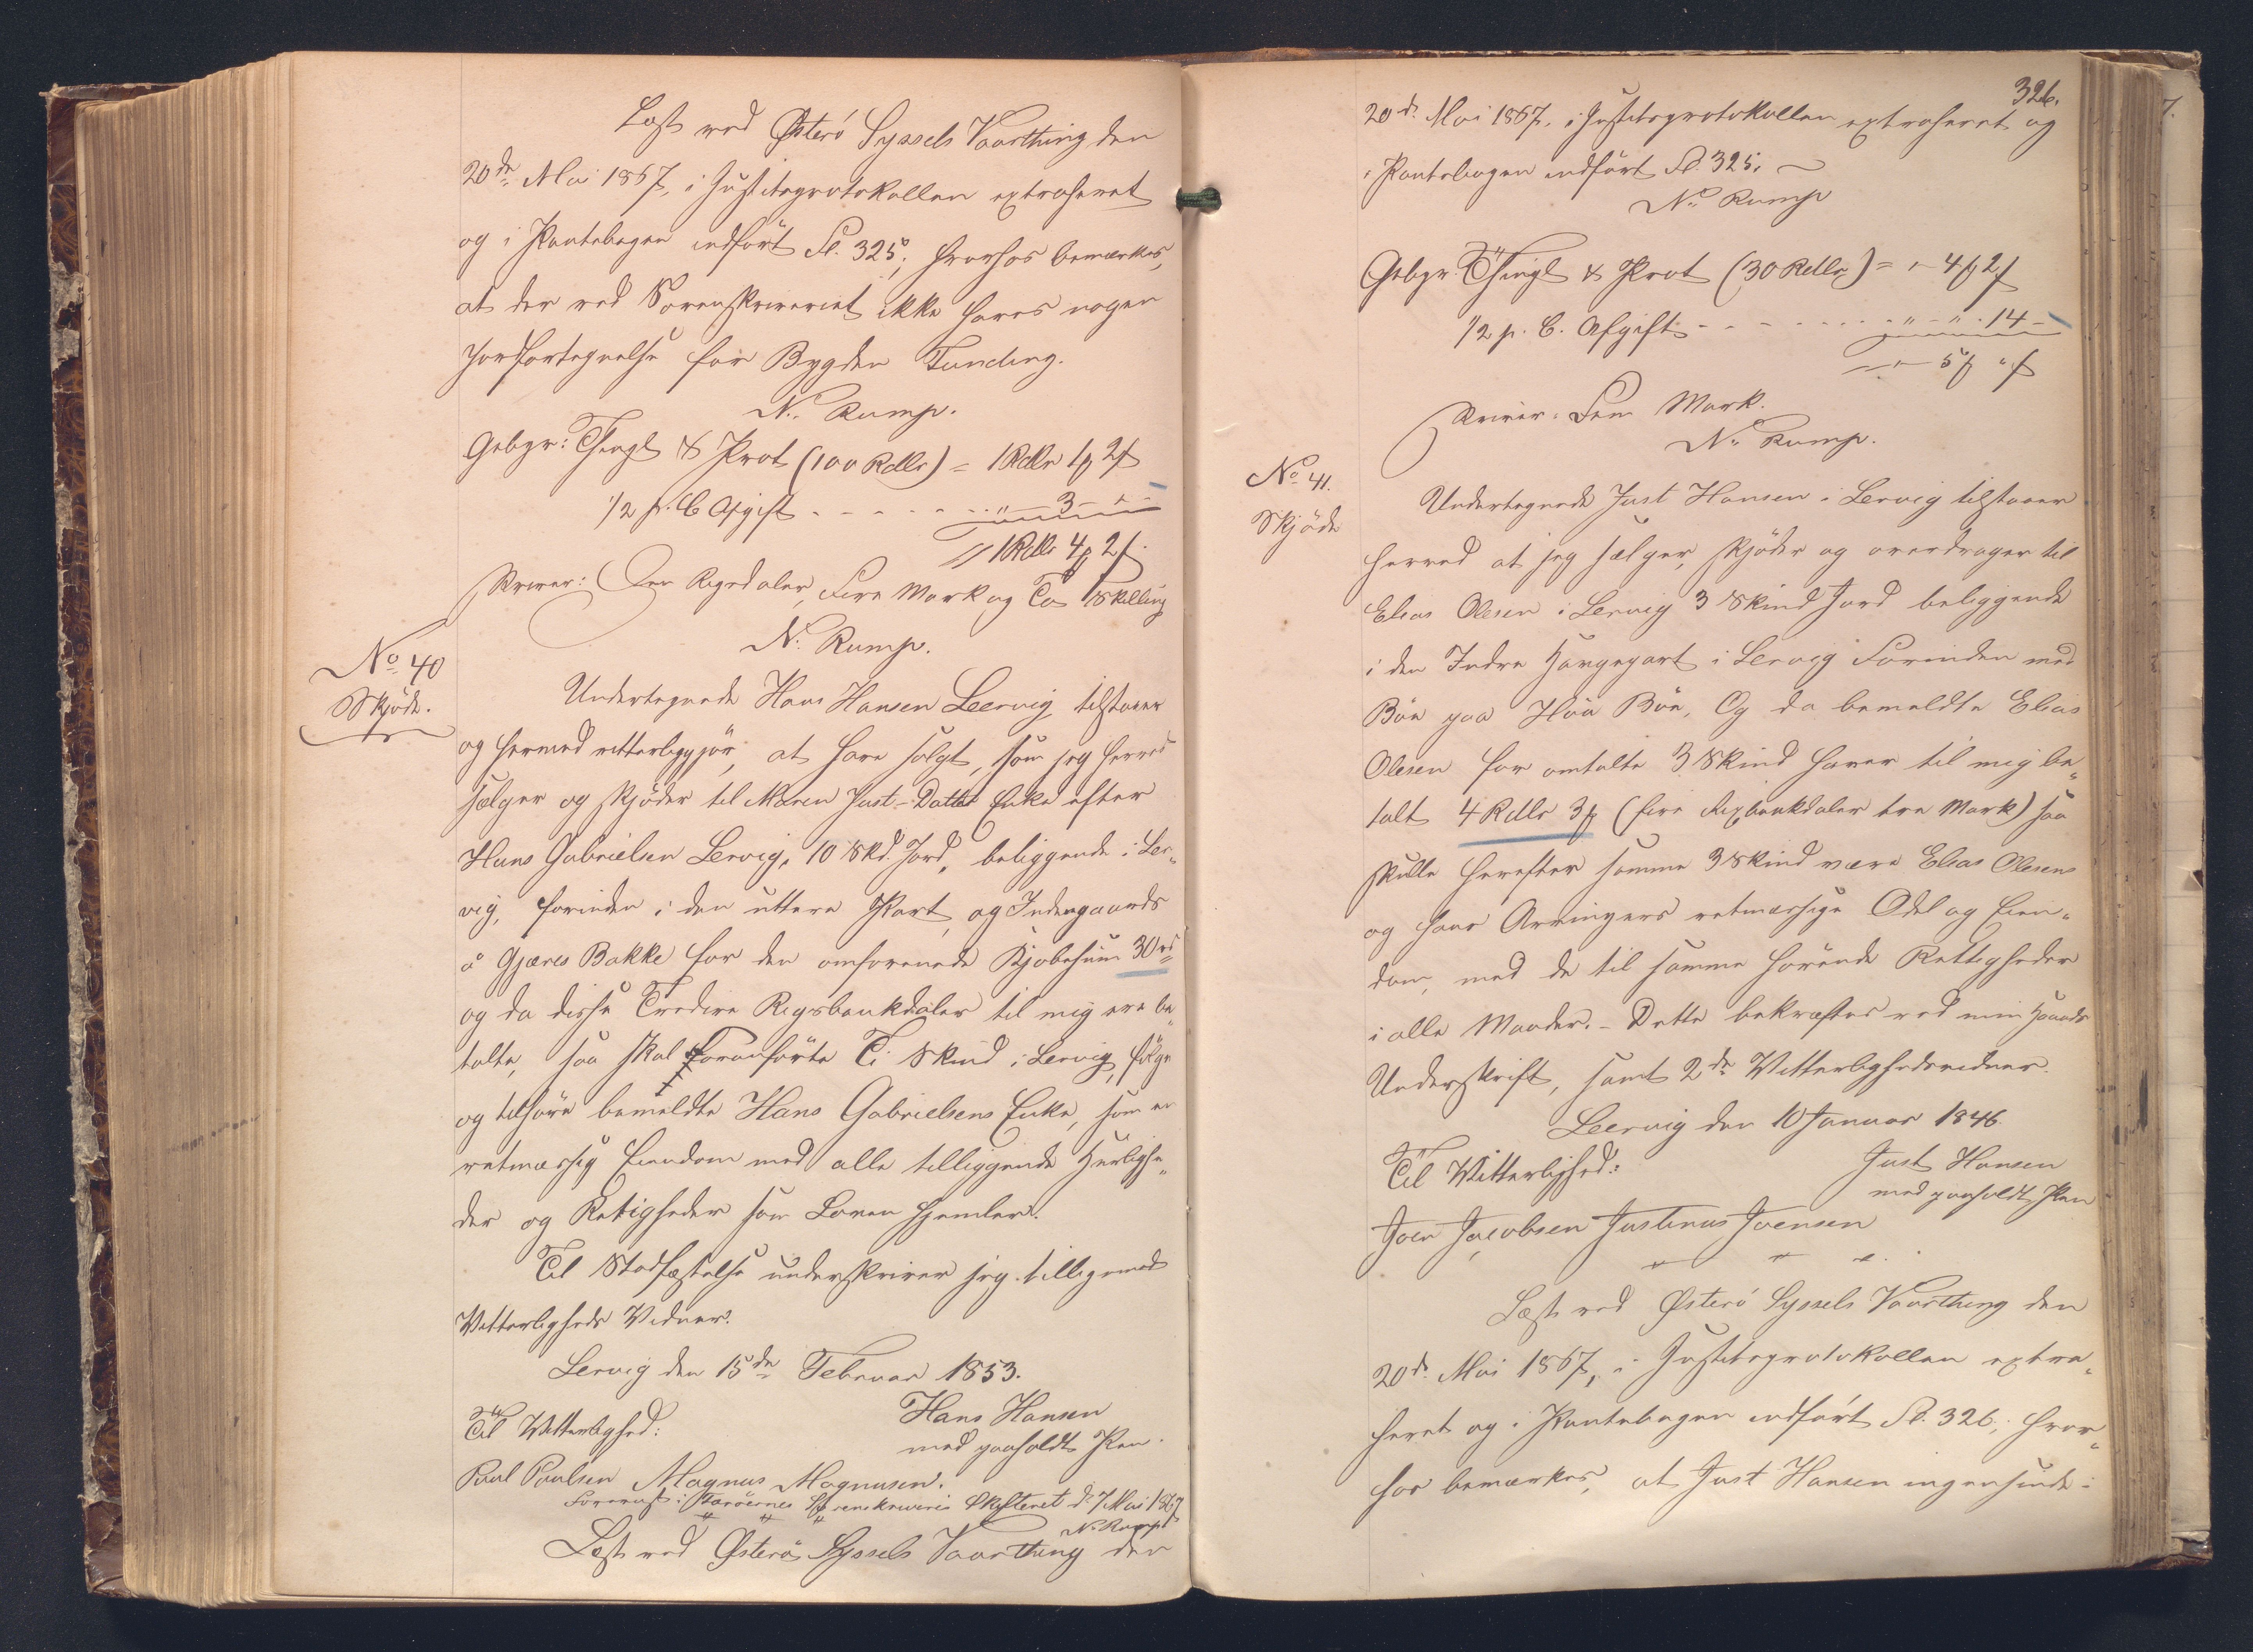 Læst ved Østerö Syssels Vaarthing den
20de Mai 1867, i Justitsprotokollen extraheret
og i Pantebogen indfört Sd. 325; hvorhos bemærkes,
at der ved Sorenskriveriet ikke haves nogen
Jordfortegnelse for Bygden Funding.
N. Rump.
Gebyr: Thingl & Prot (100 Rdlr) = 1 Rdlr 1 ₰ 2 ſ
1/2 p. C Afgift - - - - - - " 3 - " -
1 Rdlr 4 ₰ 2 ſ.
skriver: Een Rigsdaler, Fire Mark og To Skilling
N. Rump.
No 40
Skjöde.
Undertegnede Hans Hansen Leervig tilstaaer
og hermed vitterliggjör, at have solgt, som jeg herved
sælger og skjöder til Maren Just-Datter Enke efter
Hans Gabrielsen Lervig, 10 Skd. Jord, beliggende i Ler-
vig, forinden i den uttere Part, og Indengaards
å Gjæres Bakke for den omforenede Kjöbesum 30 rd
og da disse Tredive Rigsbankdaler til mig ere be-
talte, saa skal foranförte Ti Skind i Lervig, fölge
og tilhöre bemeldte Hans Gabrielsens Enke, som en
retmæssig Eiendom med alle tilliggende Herlighe-
der og Retigheder som Loven hjemler.
Til Stadfæstelse underskriver jeg tilligemed
Vitterligheds Vidner.
Lervig den 15de Februar 1853.
Til Vitterlighed:
Hans Hansen
med paaholdt Pen.
Poul Poulsen Magnus Magnusen.
Forevist i Færöernes Sorenskriveri Skysteret d. 7 Mai 1867
N. Rump
Læst ved Österö Syssels Vaarthing den
326.
20de Mai 1867, i Justitsprotokollen extraheret og
i Pantebogen indfört Sd. 325.
N. Rump
Gebyr: Thingl & Prot (30 Rdlr) = " - 4 ₰ 2 ſ
1/2 p. C. Afgift - - - - - - " - " - 14 -
" - 5 ₰ " ſ
skriver: Fem Mark.
N. Rump.
No 41.
Skjöde
Undertegnede Just Hansen i Lervig tilstaaer
herved at jeg sælger, skjöder og overdrager til
Elias Olesen i Lervig 3 Skind Jord beliggende
i den Indre Haugepart i Lervig Forinden med
Böe paa Höa Böe, Og da bemeldte Elias
Olesen for omtalte 3 Skind haver til mig be-
talt 4 Rdlr 3 ₰ (fire Rigsbankdaler tre Mark) saa
skulle herefter samme 3 Skind være Elias Olesens
og hans Arvingers retmæssige Odel og Eien-
dom, med de til samme hörende Rettigheder
i alle Maader. - Dette bekræftes ved min Haands
Underskrift, samt 2de Vitterlighedsvidner.
Leervig den 10 Januar 1846.
Til Vitterlighed:
Just Hansen
med paaholdt Pen
Joen Jacobsen Justinus Joensen
Læst ved Østerö Syssels Vaarthing den
20de Mai 1867, i Justitsprotokollen extra-
heret og i Pantebogen indfört Sd. 326; hvor-
hos bemærkes, at Just Hansen ingensinde i